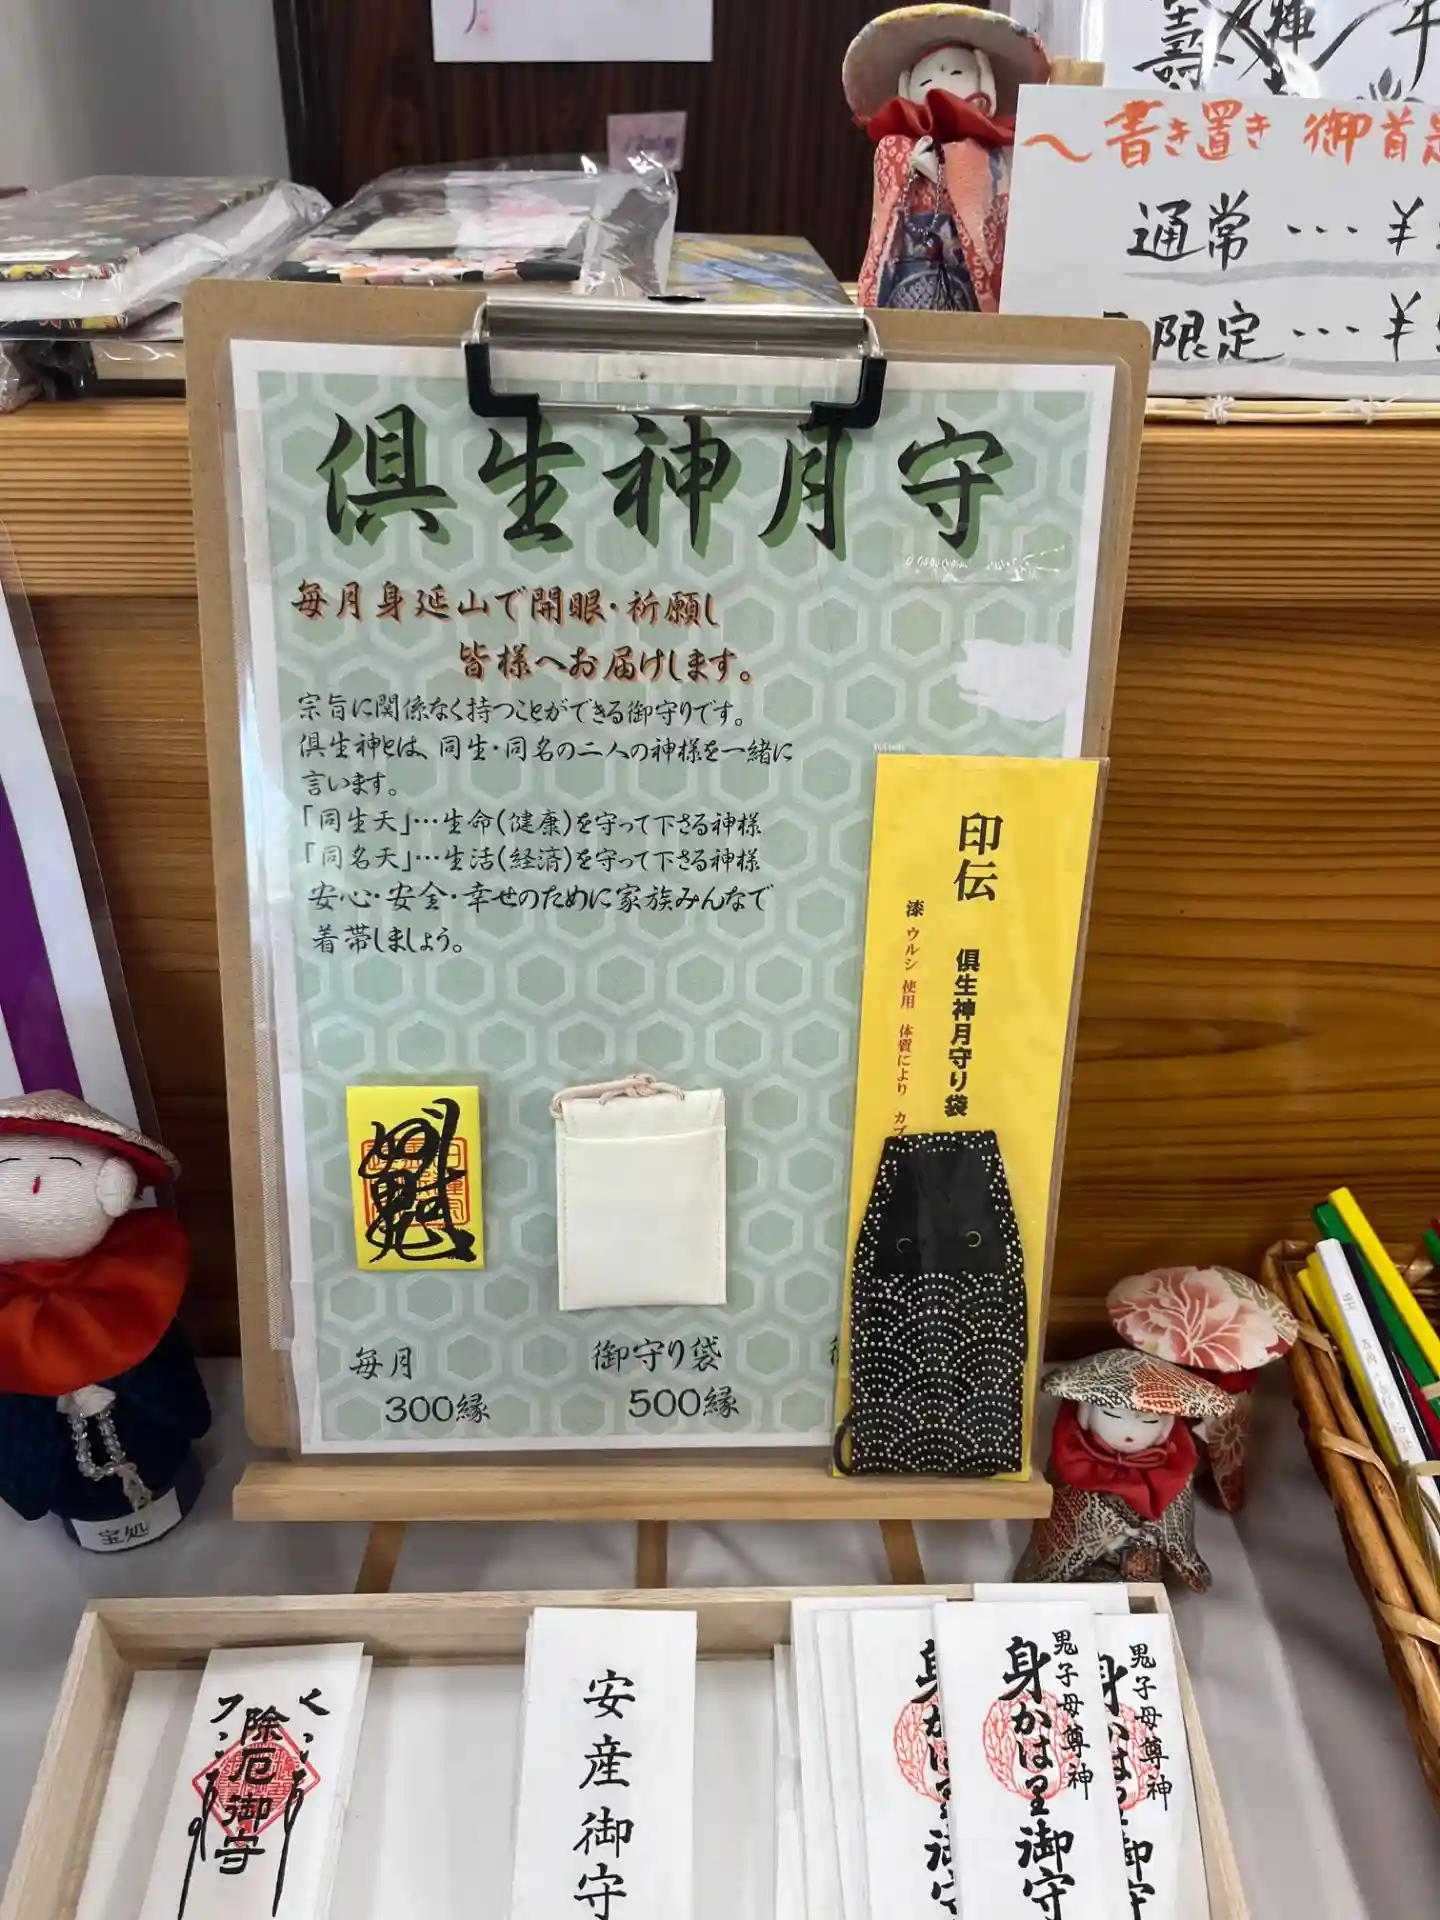 〜書き置き 御首題
通常…¥
限定…¥
倶生神月守
毎月身延山で開眼・祈願し
皆様へお届けします。
宗旨に関係なく持つことができる御守りです。
倶生神とは、同生・同名の二人の神様を一緒に
言います。
「同生天」…生命(健康)を守って下さる神様
「同名天」…生活(経済)を守って下さる神様
安心・安全・幸せのために家族みんなで
着帯しましょう。
印伝
倶生神月守り袋
漆 ウルシ 使用 体質により カブ
毎月
300縁
御守り袋
500縁
宝処
除厄御守
安産御守
鬼子母尊神
身がはり御守
鬼子母尊神